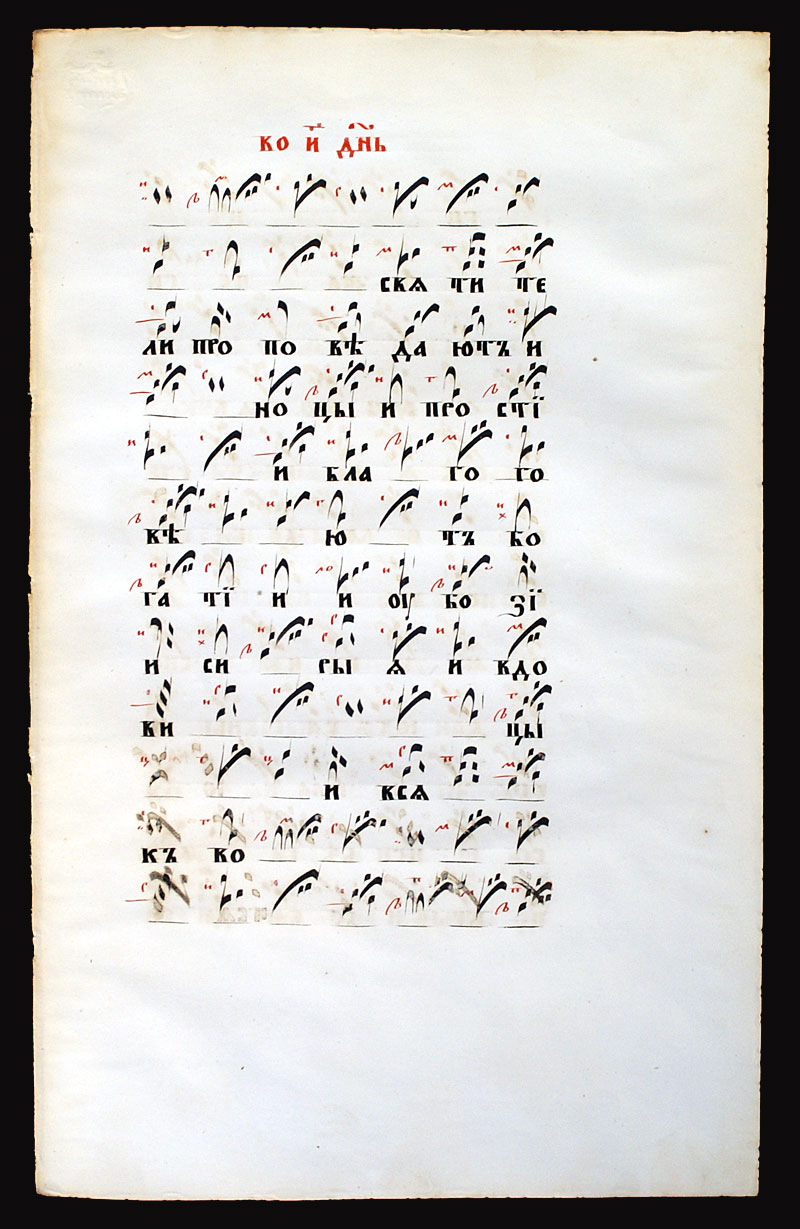 во и҃ дн҃ь
свѧ ти те
ли про по вѣ да ютъ и
но цы и про стї
и бла го го
вѣ ю тъ бо
га тї и и оу бо зї
и си ры ѧ и вдо
ви цы
и всѧ
къ во